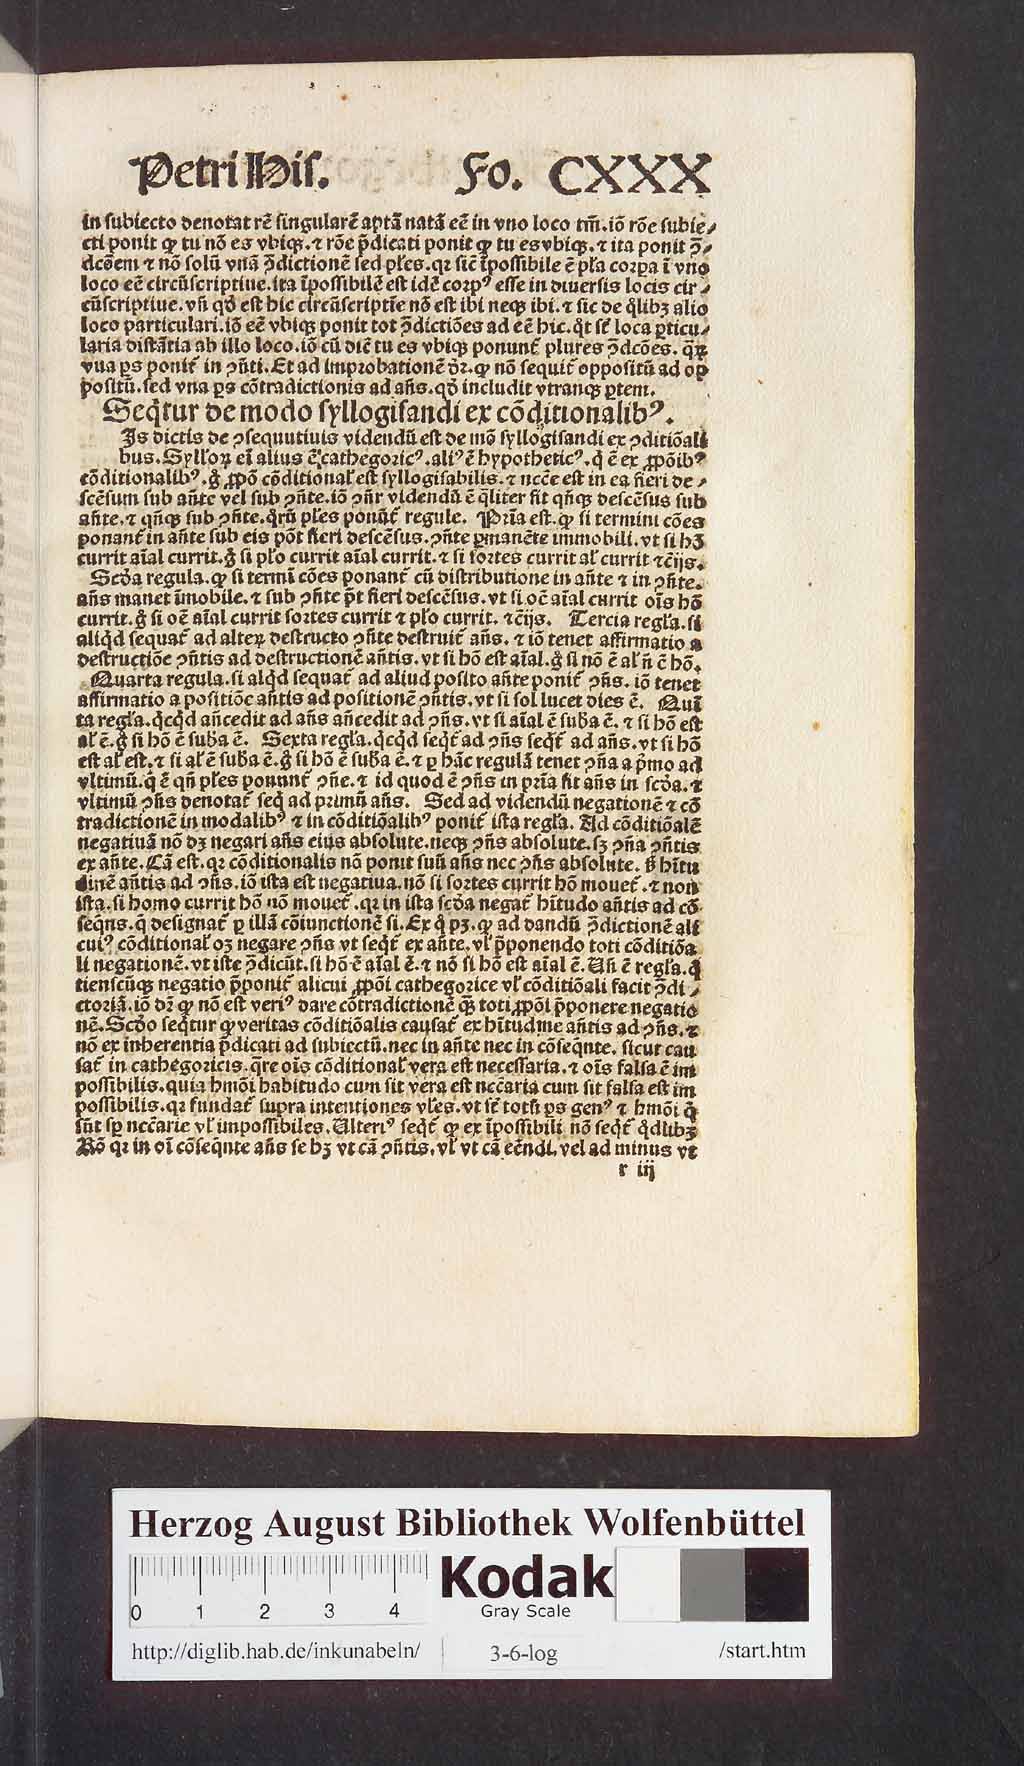 Petri His. Fo. CXXX
in subiecto denotat rē singularē aptā natā eē in vno loco tm̄. iō rōe subie⸗
cti ponit ꝙ tu nō es vbiqꝫ. ⁊ rōe p̄dicati ponit ꝙ tu es vbiqꝫ. ⁊ ita ponit ꝯ̄⸗
dcōem ⁊ nō solū vnā ꝯ̄dictionē sed ples. qꝛ sic̄ īpossibile ē pla corpa ī vno
loco eē circūscriptiue. ita īpossibilē est idē corpꝰ esse in diuersis locis cir⸗
cūscriptiue. vn̄ qď est hic circūscriptīe nō est ibi neqꝫ ibi. ⁊ sic de qͥlibꝫ alio
loco particulari. iō eē vbiqꝫ ponit tot ꝯ̄dictiōes ad eē hic. qͦt sc̄ loca ꝑticu⸗
laria distātia ab illo loco. iō cū dic̄ tu es vbiqꝫ ponunt̄ plures ꝯ̄dcōes. qͣꝝ
vna ꝑs ponit̄ in ꝯn̄ti. Et ad improbationē dr̄. ꝙ nō sequit̄ oppositū ad op
positū. sed vna ꝑs cōtradictionis ad an̄s. qď includit vtranqꝫ ꝑtem.
Seqͥtur de modo syllogisandi ex cōditionalibꝰ.
Is dictis de ꝯsequutiuis videndū est de mō syllogisandi ex ꝯditiōali
bus. Sylloꝝ eī alius ē cathegoricꝰ. aliꝰ ē hypotheticꝰ. qͥ ē ex ꝓpōibꝰ
cōditionalibꝰ. gͦ ꝓpō cōditional est syllogisabilis. ⁊ ncc̄e est in ea fieri de⸗
scēsum sub an̄te vel sub ꝯn̄te. iō ꝯn̄r videndū ē qͣliter fit qn̄qꝫ descēsus sub
an̄te. ⁊ qn̄qꝫ sub ꝯn̄te. qͦrū ples ponūt̄ regule. Pria est. ꝙ si termini cōes
ponant̄ in an̄te sub eis pōt fieri descēsus. ꝯn̄te ꝑmanēte immobili. vt si hō
currit aīal currit. gͦ si plo currit aīal currit. ⁊ si sortes currit al currit ⁊c̄ijs.
Scďa regula. ꝙ si termī cōes ponant̄ cū distributione in an̄te ⁊ in ꝯn̄te.
an̄s manet īmobile. ⁊ sub ꝯn̄te pōt fieri descēsus. vt si oē aīal currit oīs hō
currit. gͦ si oē aīal currit sortes currit ⁊ plo currit. ⁊c̄ijs. Tercia regla. si
aliqͥd sequat̄ ad alterꝝ destructo ꝯn̄te destruit̄ an̄s. ⁊ iō tenet affirmatio a
destructiōe ꝯn̄tis ad destructionē an̄tis. vt si hō est aīal. gͦ si nō ē al n̄ ē hō.
Quarta regula. si alqͥd sequat̄ ad aliud posito an̄te ponit̄ ꝯn̄s. iō tenet
affirmatio a positiōe an̄tis ad positionē ꝯn̄tis. vt si sol lucet dies ē. Quī
ta regla. qͥcqͥd an̄cedit ad an̄s an̄cedit ad ꝯn̄s. vt si aīal ē suba ē. ⁊ si hō est
al ē. gͦ si hō ē suba ē. Sexta regla. qͥcqͥd seqͥt̄ ad ꝯn̄s seqͥt̄ ad an̄s. vt si hō
est al est. ⁊ si al ē suba ē. gͦ si hō ē suba ē. ⁊ ꝑ hāc regulā tenet ꝯn̄a a pͥmo ad
vltimū. qͥ ē qn̄ ples ponunt̄ ꝯn̄e. ⁊ id quod ē ꝯn̄s in pria fit an̄s in scďa. ⁊
vltimū ꝯn̄s denotat̄ seqͥ ad primū an̄s. Sed ad videndū negationē ⁊ cō
tradictionē in modalibꝰ ⁊ in cōditiōalibꝰ ponit̄ ista regla. Ad cōditiōalē
negatiuā nō dꝫ negari an̄s eius absolute. neqꝫ ꝯn̄s absolute. sꝫ ꝯn̄a ꝯn̄tis
ex an̄te. Cā est. qꝛ cōditionalis nō ponit suū an̄s nec ꝯn̄s absolute. sꝫ hītu
dinē an̄tis ad ꝯn̄s. iō ista est negatiua. nō si sortes currit hō mouet̄. ⁊ non
ista. si homo currit hō nō mouet̄. qꝛ in ista scďa negat̄ hītudo an̄tis ad cō
seqn̄s. qͣ designat̄ ꝑ illā cōiunctionē si. Ex qͦ pꝫ. ꝙ ad dandū ꝯ̄dictionē ali
cuiꝰ cōditional oꝫ negare ꝯn̄s vt seqͥt̄ ex an̄te. vl p̄ponendo toti cōditiōa
li negationē. vt iste ꝯ̄dicūt. si hō ē aīal ē. ⁊ nō si hō est aīal ē. Vn̄ ē regla. qͦ
tienscūqꝫ negatio p̄ponit̄ alicui ꝓpōi cathegorice vl cōditiōali facit ꝯ̄di⸗
ctoriā. iō dꝛ ꝙ nō est veriꝰ dare cōtradictionē qͣꝫ toti ꝓpōi p̄ponere negatio
nē. Scďo seqͥtur ꝙ veritas cōditiōalis causat̄ ex hītudine an̄tis ad ꝯn̄s. ⁊
nō ex inherentia p̄dicati ad subiectū. nec in an̄te nec in cōseqn̄te. sicut cau
sat̄ in cathegoricis. qͣre oīs cōditional vera est necessaria. ⁊ oīs falsa ē im
possibilis. quia hmōi habitudo cum sit vera est nccāria cum sit falsa est im
possibilis. qꝛ fundat̄ supra intentiones vles. vt sc̄ totū ꝑs genꝰ ⁊ hmōi qͥ
sūt sꝑ nccārie vl impossibiles. Vlteriꝰ seqͥt̄ ꝙ ex īpossibili nō seqͥt̄ qͥdlibꝫ
Rō qꝛ in oī cōseqn̄te an̄s se hꝫ vt cā ꝯn̄tis. vl vt cā eēndi. vel ad minus vt
r iij
Herzog August Bibliothek Wolfenbüttel
0 1 2 3 4
Kodak
Gray Scale
http://diglib.hab.de/inkunabeln/ 3-6-log /start.htm